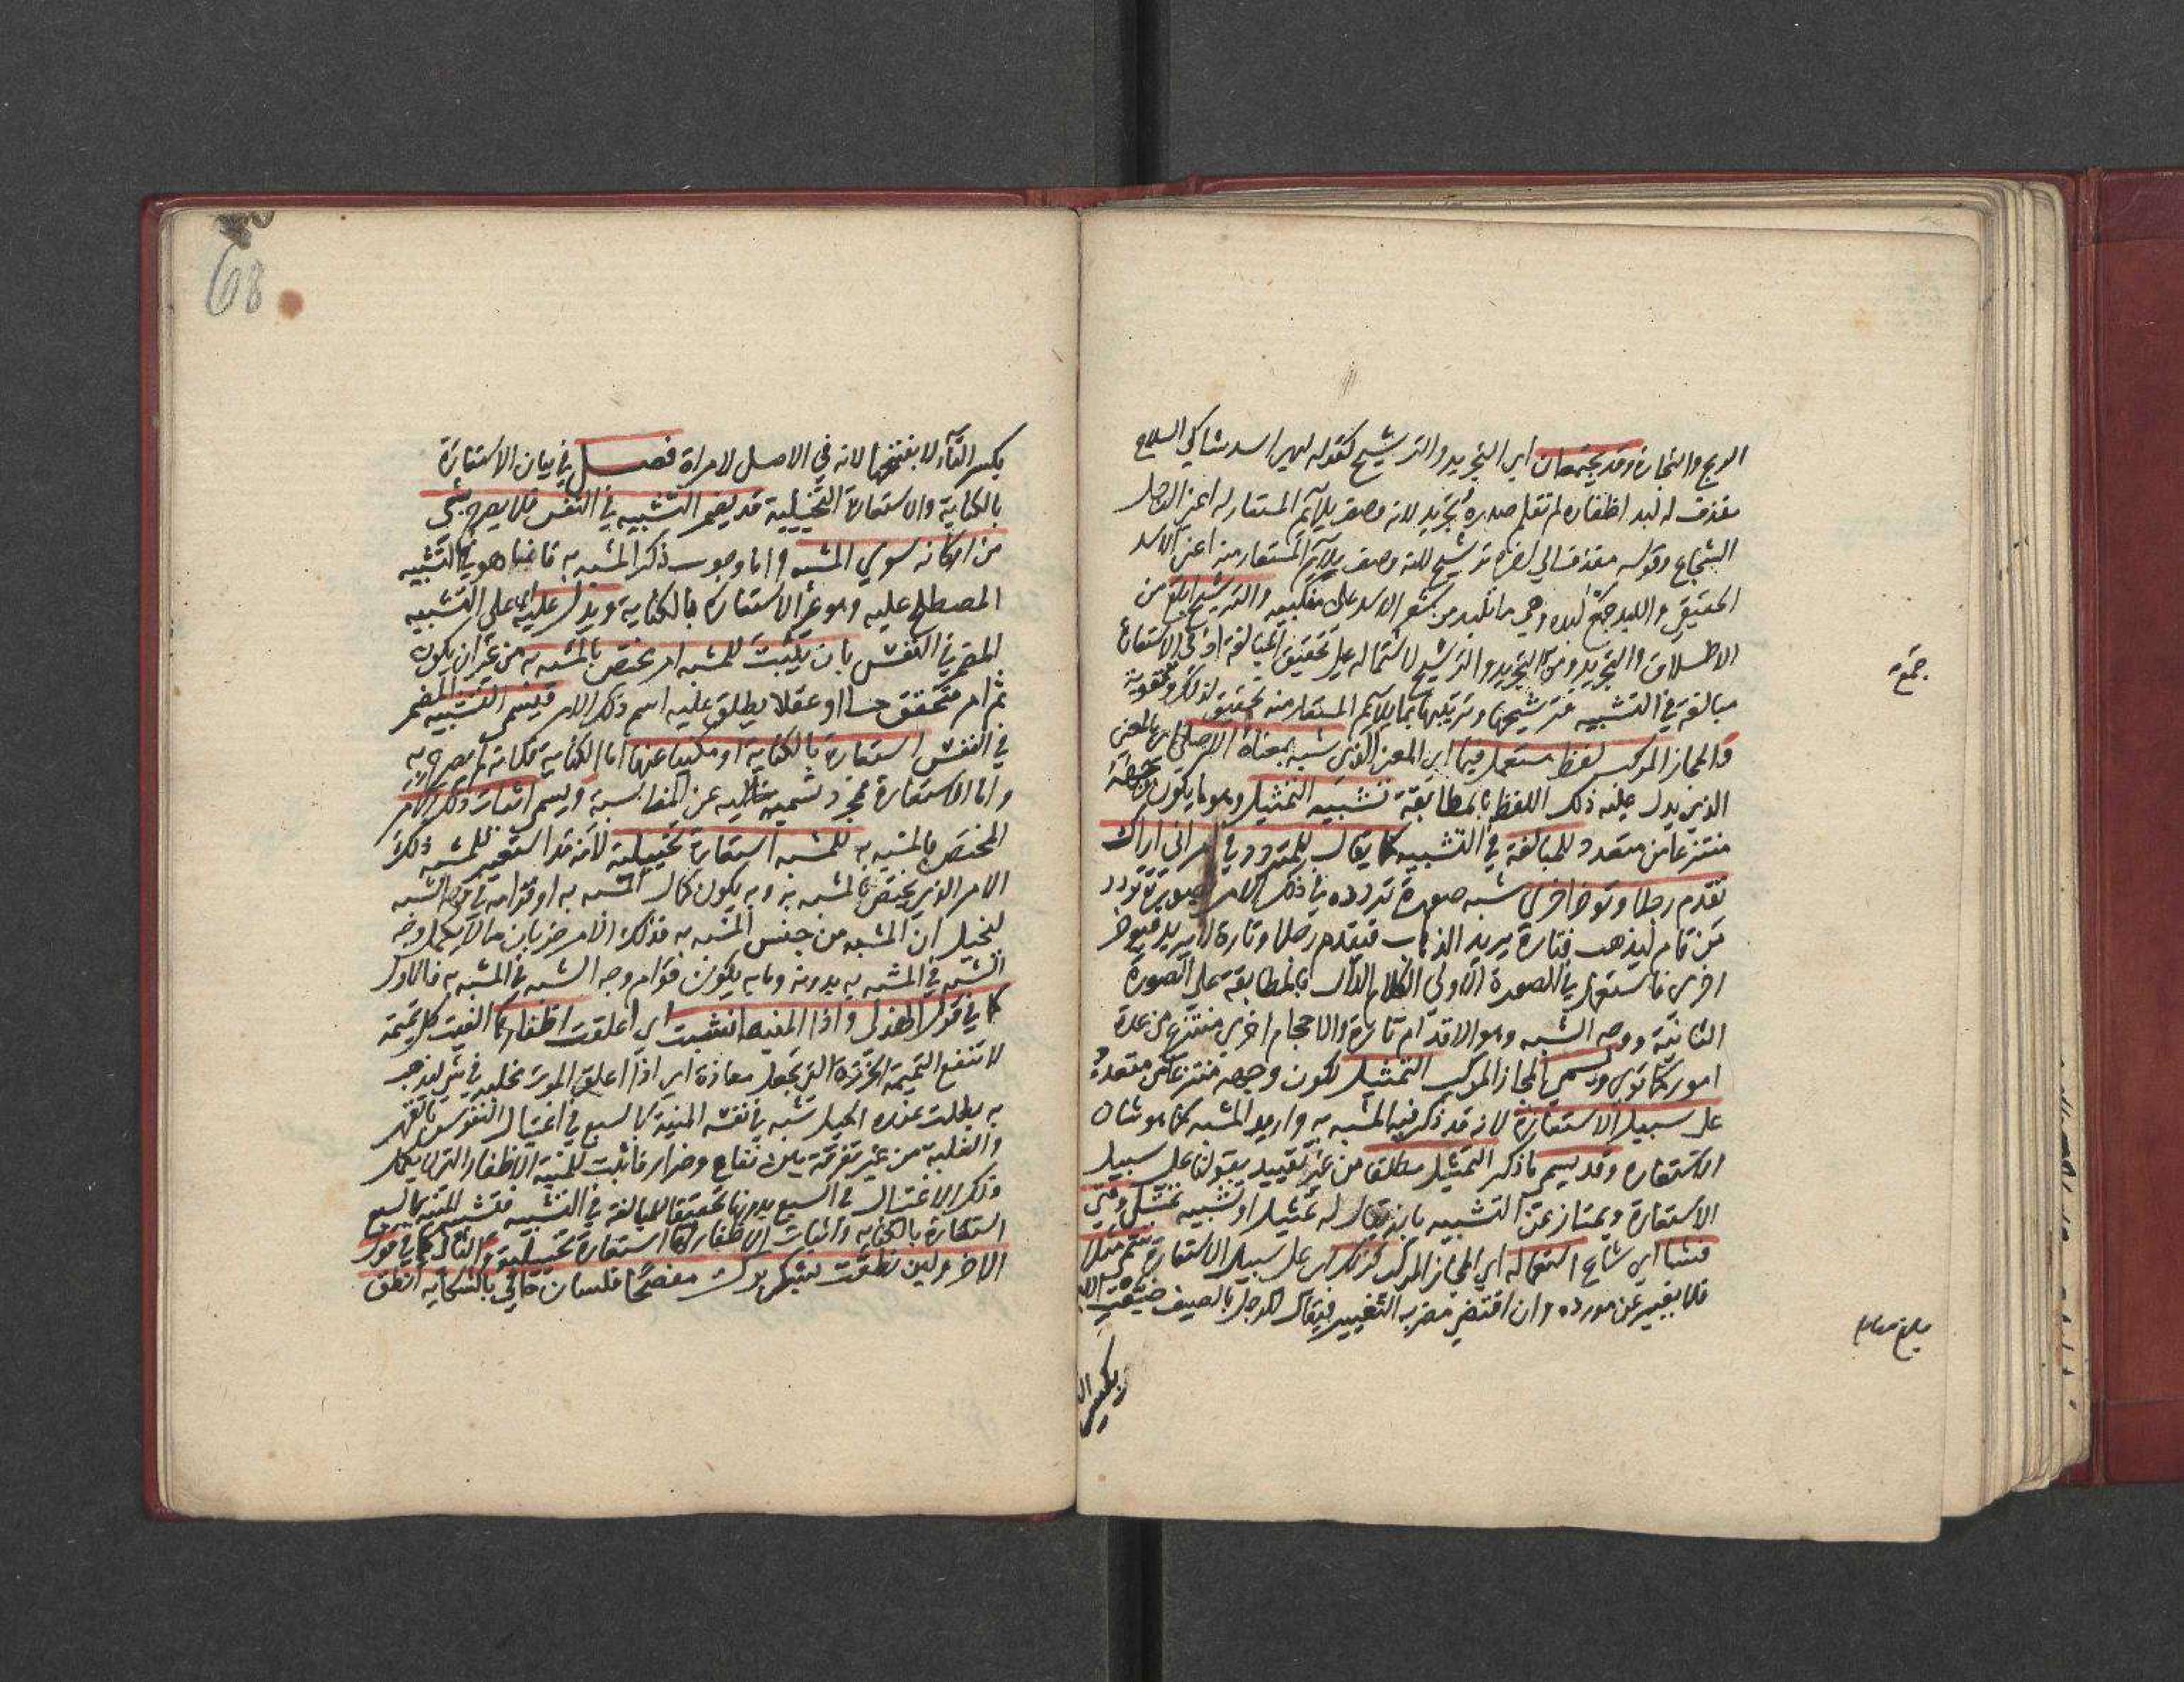 الربح والتجارة وقد يجتمعان اي التجريد والترشيح كقوله لدي اسد شاكي السلاح
مقذف له لبد اظفاره لم تقلم صدره تجريد لانه وصف يلائم المستعار له اعني الرجل
الشجاع وقوله مقذف الى اخره ترشيح لانه وصف يلائم المستعار منه اعني الاسد
الحقيقي واللبد جمع لبدة وهي ما تلبد من شعر الاسد على منكبيه والترشيح ابلغ من
الاطلاق والتجريد ومن التجريد والترشيح لاشتماله على تحقيق المبالغة اذ في الاستعارة
مبالغة في التشبيه فترشيحها وتزيينها بما يلائم المستعار منه تحقيق لذلك وتقوية
والمجاز المركب لفظ مستعمل فيما اي المعنى الذي شبه بمعناه الاصلي اي المعنى
الذي يدل عليه ذلك اللفظ بالمطابقة تشبيه التمثيل وهو ما يكون وجهه
منتزعا من متعدد للمبالغة في التشبيه كما يقال للمتردد في امر اني اراك
تقدم رجلا وتؤخر اخرى شبه صورة تردده في ذلك الامر بصورة تردد
من قام ليذهب فتارة يريد الذهاب فيقدم رجلا وتارة لا يريد فيؤخر
اخرى فاستعمل في الصورة الاولى الكلام الدال بالمطابقة على الصورة
الثانية ووجه الشبه وهو الاقدام تارة والاحجام اخرى منتزع من عدة
امور كما ترى ويسمى المجاز المركب التمثيل لكون وجهه منتزعا من متعدد
على سبيل الاستعارة لانه قد ذكر فيه المشبه به واريد المشبه كما هو شان
الاستعارة وقد يسمى ما ذكر التمثيل مطلقا من غير تقييد بقولنا على سبيل
الاستعارة ويمتاز عن التشبيه بان يقال له تمثيل او تشبيه تمثيلي ومتى
فشا اي شاع استعماله اي المجاز المركب كذلك اي على سبيل الاستعارة سمي مثلا
فلا يغير عن مورده وان اقتضى مضربه التغيير فيقال للرجل بالصيف ضيعت اللبن
جمع
بلغ مقابلة
بكسر التا
68
بكسر التاء لا بفتحها لانه في الاصل لامراة فصل في بيان الاستعارة
بالكناية والاستعارة التخييلية قد يضمر التشبيه في النفس فلا يصرح بشيء
من اركانه سوى المشبه واما وجوب ذكر المشبه به فانما هو في التشبيه
المصطلح عليه وهو غير الاستعارة بالكناية ويدل عليه اي على التشبيه
المضمر في النفس بان يثبت للمشبه امر مختص بالمشبه به من غير ان يكون
ثم امر متحقق حسا او عقلا يطلق عليه اسم ذلك الامر فيسمى التشبيه المضمر
في النفس استعارة بالكناية او مكنيا عنها اما الكناية فلانه لم يصرح به
واما الاستعارة فمجرد تسمية خالية عن المناسبة ويسمى اثبات ذلك الامر
المختص بالمشبه به للمشبه استعارة تخييلية لانه قد استعير للمشبه ذلك
الامر الذي يختص بالمشبه به وبه يكون كمال المشبه به او قوامه في وجه الشبه
ليخيل ان المشبه من جنس المشبه به فذلك الامر ضربان ما لا يكمل وجه
الشبه في المشبه به بدونه وما به يكون قوام وجه الشبه في المشبه به فالاول
كما في قول الهذلي واذا المنية انشبت اي اعلقت اظفارها الفيت كل تميمة
لا تنفع التميمة الخرزة التي تجعل معاذة اي اذا اعلق الموت مخلبه في شيء ليذهب
به بطلت عنده الحيل شبه في نفسه المنية بالسبع في اغتيال النفوس بالقهر
والغلبة من غير تفرقة بين نفاع وضرار فاثبت للمنية الاظفار التي لا يكمل
ذلك الاغتيال في السبع بدونها تحقيقا للمبالغة في التشبيه فتشبيه المنية بالسبع
استعارة بالكناية واثبات الاظفار لها استعارة تخييلية والثاني كما في قول
الاخر ولئن نطقت بشكر برك مفصحا فلسان حالي بالشكاية انطق